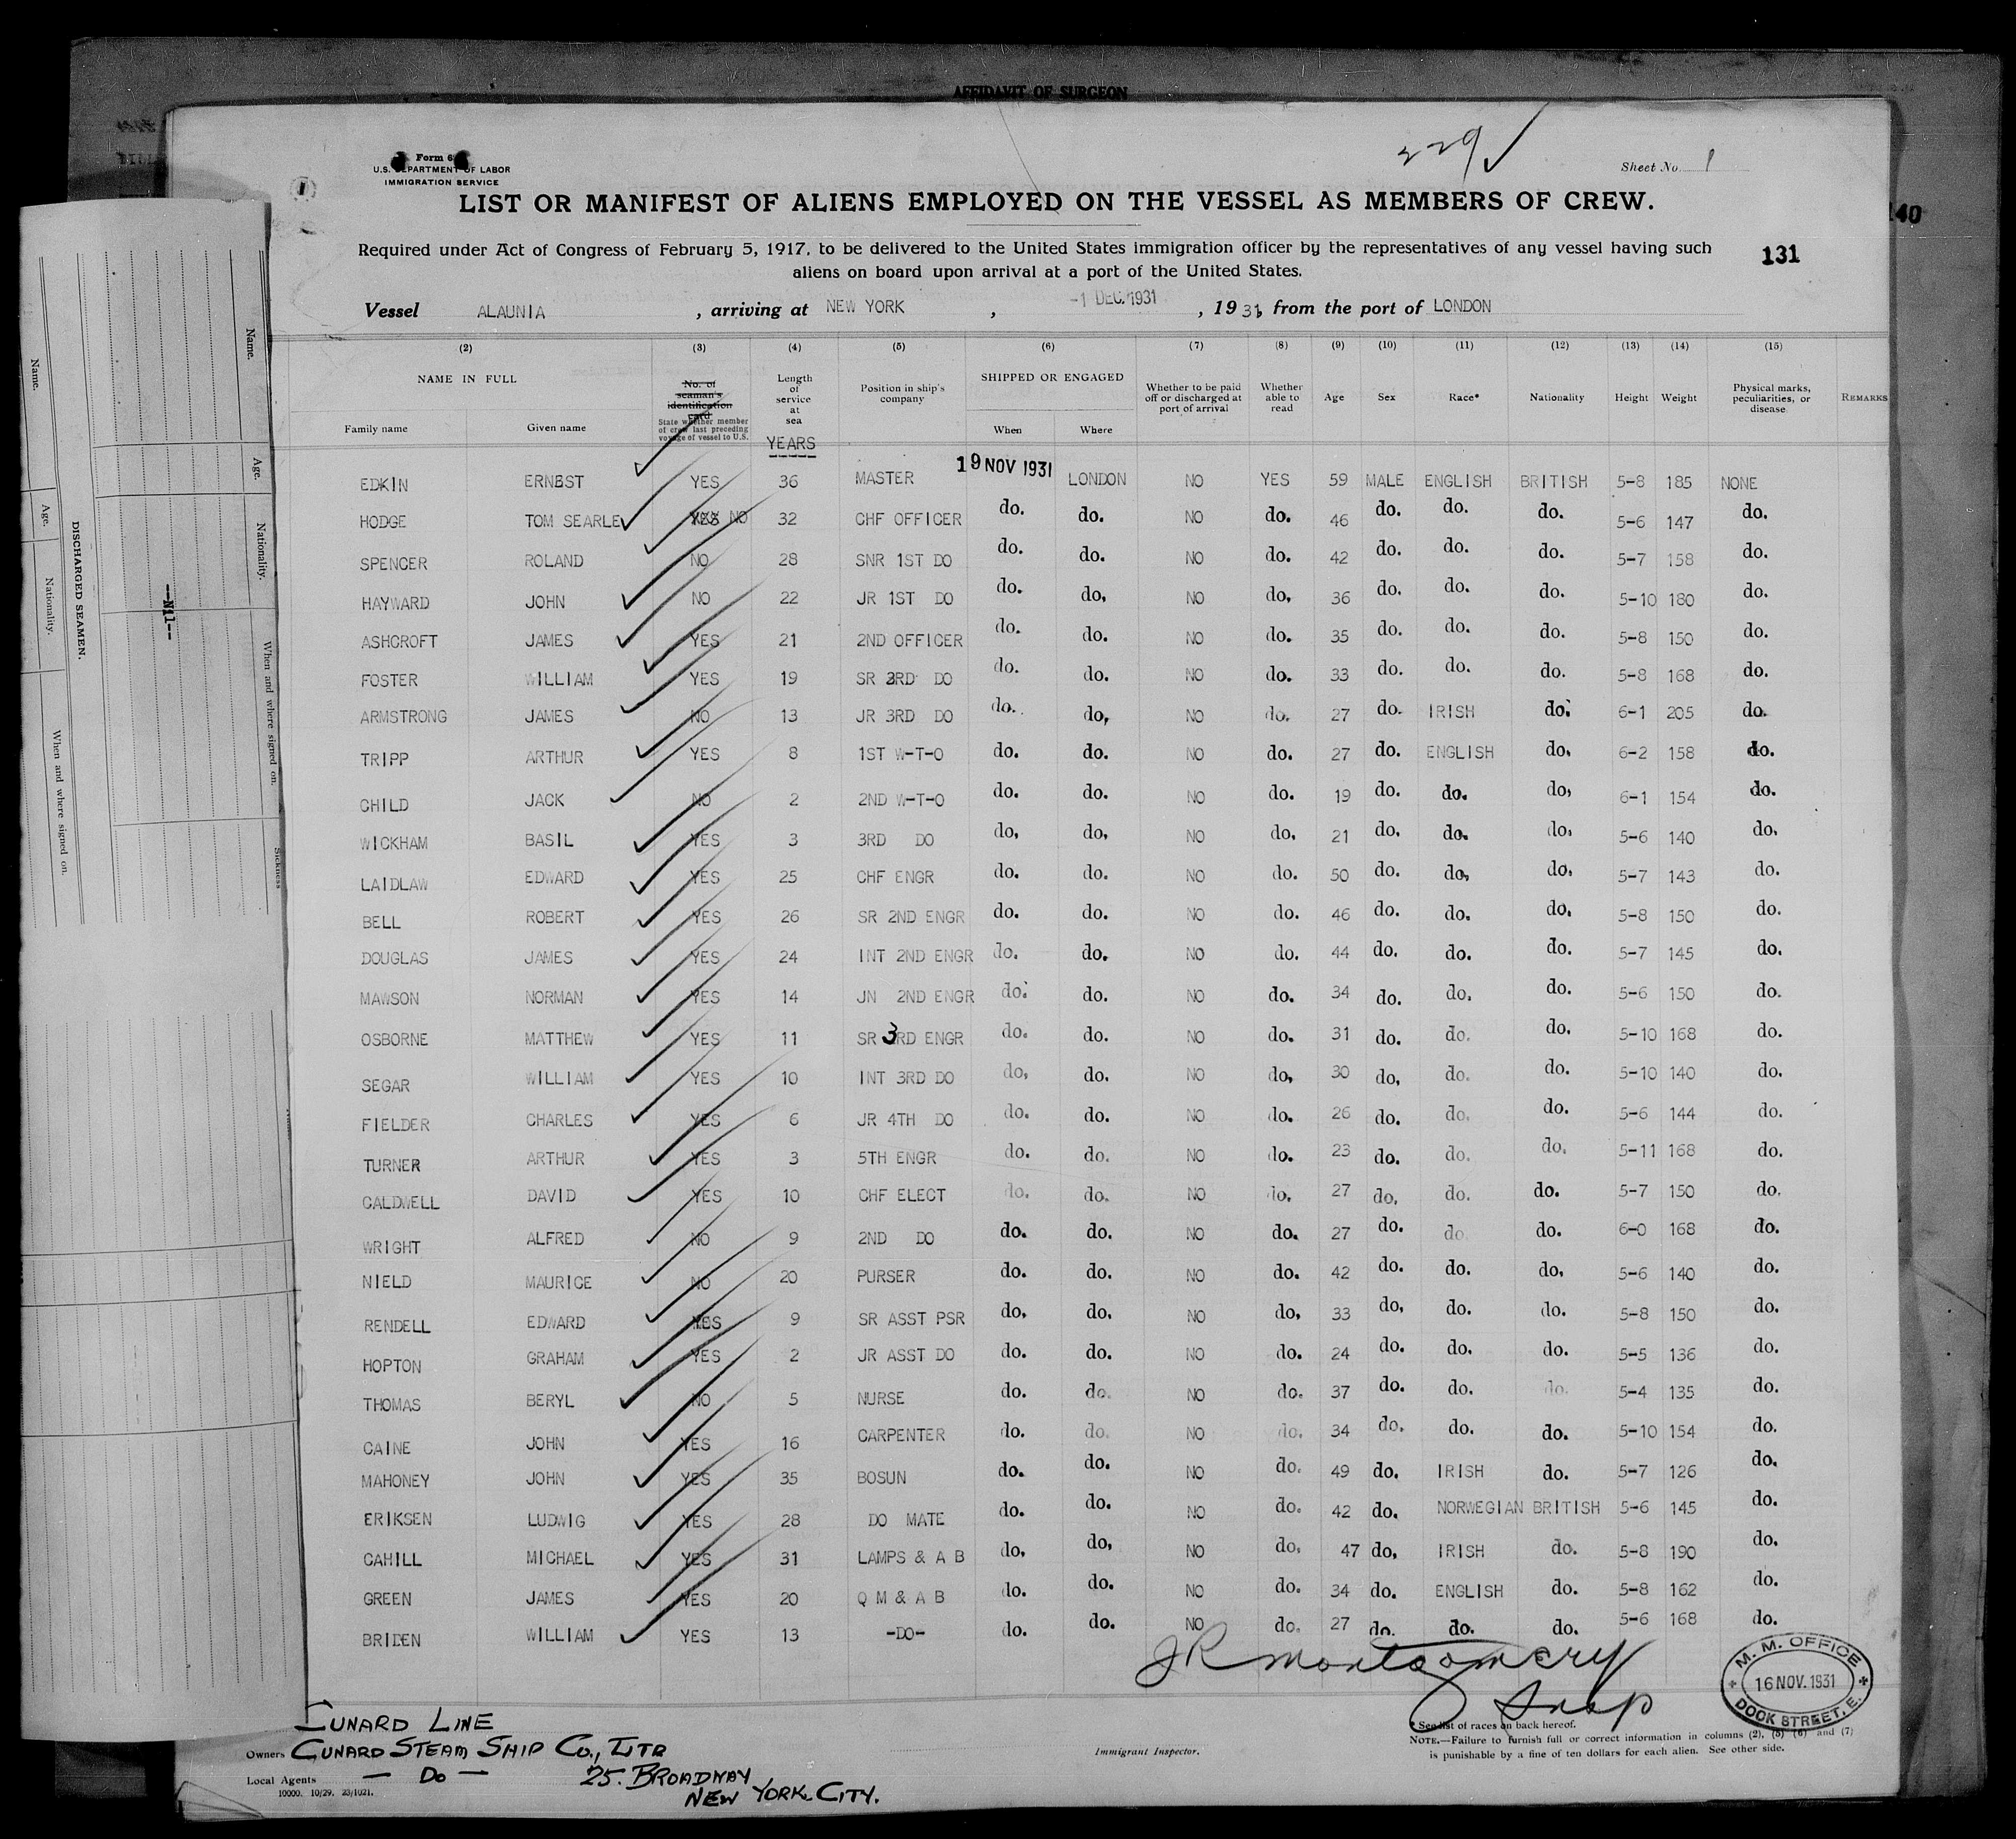 AFFIDAVIT OF SURGEON
229
Sheet No. 1
U.S. DEPARTMENT OF LABOR
IMMIGRATION SERVICE
LIST OR MANIFEST OF ALIENS EMPLOYED ON THE VESSEL AS MEMBERS OF CREW.
140
Required under Act of Congress of February 5, 1917, to be delivered to the United States immigration officer by the representatives of any vessel having such
aliens on board upon arrival at a port of the United States.
131
Vessel ALAUNIA, arriving at NEW YORK, -1 DEC. 1931, 1931, from the port of LONDON
(2) (3) (4) (5) (6) (7) (8) (9) (10) (11) (12) (13) (14) (15)
NAME IN FULL
Family name
Given name
No. of seaman's identification card
State whether member of crew last preceding voyage of vessel to U.S.
Length of service at sea
YEARS
Position in ship's company
SHIPPED OR ENGAGED
When
Where
Whether to be paid off or discharged at port of arrival
Whether able to read
Age
Sex
Race*
Nationality
Height
Weight
Physical marks, peculiarities, or disease
REMARKS
EDKIN ERNEST YES 36 MASTER 19 NOV 1931 LONDON NO YES 59 MALE ENGLISH BRITISH 5-8 185 NONE
HODGE TOM SEARLE YES NO 32 CHF OFFICER do. do. NO do. 46 do. do. do. 5-6 147 do.
SPENCER ROLAND NO 28 SNR 1ST DO do. do. NO do. 42 do. do. do. 5-7 158 do.
HAYWARD JOHN NO 22 JR 1ST DO do. do. NO do. 36 do. do. do. 5-10 180 do.
ASHCROFT JAMES YES 21 2ND OFFICER do. do. NO do. 35 do. do. do. 5-8 150 do.
FOSTER WILLIAM YES 19 SR 3RD DO do. do. NO do. 33 do. do. do. 5-8 168 do.
ARMSTRONG JAMES NO 13 JR 3RD DO do. do. NO do. 27 do. IRISH do. 6-1 205 do.
TRIPP ARTHUR YES 8 1ST W-T-O do. do. NO do. 27 do. ENGLISH do. 6-2 158 do.
CHILD JACK NO 2 2ND W-T-O do. do. NO do. 19 do. do. do. 6-1 154 do.
WICKHAM BASIL YES 3 3RD DO do. do. NO do. 21 do. do. do. 5-6 140 do.
LAIDLAW EDWARD YES 25 CHF ENGR do. do. NO do. 50 do. do. do. 5-7 143 do.
BELL ROBERT YES 26 SR 2ND ENGR do. do. NO do. 46 do. do. do. 5-8 150 do.
DOUGLAS JAMES YES 24 INT 2ND ENGR do. do. NO do. 44 do. do. do. 5-7 145 do.
MAWSON NORMAN YES 14 JN 2ND ENGR do. do. NO do. 34 do. do. do. 5-6 150 do.
OSBORNE MATTHEW YES 11 SR 3RD ENGR do. do. NO do. 31 do. do. do. 5-10 168 do.
SEGAR WILLIAM YES 10 INT 3RD DO do. do. NO do. 30 do. do. do. 5-10 140 do.
FIELDER CHARLES YES 6 JR 4TH DO do. do. NO do. 26 do. do. do. 5-6 144 do.
TURNER ARTHUR YES 3 5TH ENGR do. do. NO do. 23 do. do. do. 5-11 168 do.
CALDWELL DAVID YES 10 CHF ELECT do. do. NO do. 27 do. do. do. 5-7 150 do.
WRIGHT ALFRED NO 9 2ND DO do. do. NO do. 27 do. do. do. 6-0 168 do.
NIELD MAURICE NO 20 PURSER do. do. NO do. 42 do. do. do. 5-6 140 do.
RENDELL EDWARD YES 9 SR ASST PSR do. do. NO do. 33 do. do. do. 5-8 150 do.
HOPTON GRAHAM YES 2 JR ASST DO do. do. NO do. 24 do. do. do. 5-5 136 do.
THOMAS BERYL NO 5 NURSE do. do. NO do. 37 do. do. do. 5-4 135 do.
CAINE JOHN YES 16 CARPENTER do. do. NO do. 34 do. do. do. 5-10 154 do.
MAHONEY JOHN YES 35 BOSUN do. do. NO do. 49 do. IRISH do. 5-7 126 do.
ERIKSEN LUDWIG YES 28 DO MATE do. do. NO do. 42 do. NORWEGIAN BRITISH 5-6 145 do.
CAHILL MICHAEL YES 31 LAMPS & A B do. do. NO do. 47 do. IRISH do. 5-8 190 do.
GREEN JAMES YES 20 Q M & A B do. do. NO do. 34 do. ENGLISH do. 5-8 162 do.
BRIDEN WILLIAM YES 13 -DO- do. do. NO do. 27 do. do. do. 5-6 168 do.
JR Montgomery
Insp
M. M. OFFICE
16 NOV. 1931
DOCK STREET, E.
CUNARD LINE
Owners CUNARD STEAM SHIP CO., LTD
Local Agents — DO — 25. BROADWAY
NEW YORK. CITY.
10000. 10/29. 23/1021.
Immigrant Inspector.
* See list of races on back hereof.
NOTE.—Failure to furnish full or correct information in columns (2), (5) (6) and (7)
is punishable by a fine of ten dollars for each alien. See other side.
DISCHARGED SEAMEN.
Name.
Age.
Nationality.
When and where signed on.
--Nil--
Name.
Age.
Nationality.
When and where signed on.
Sickness